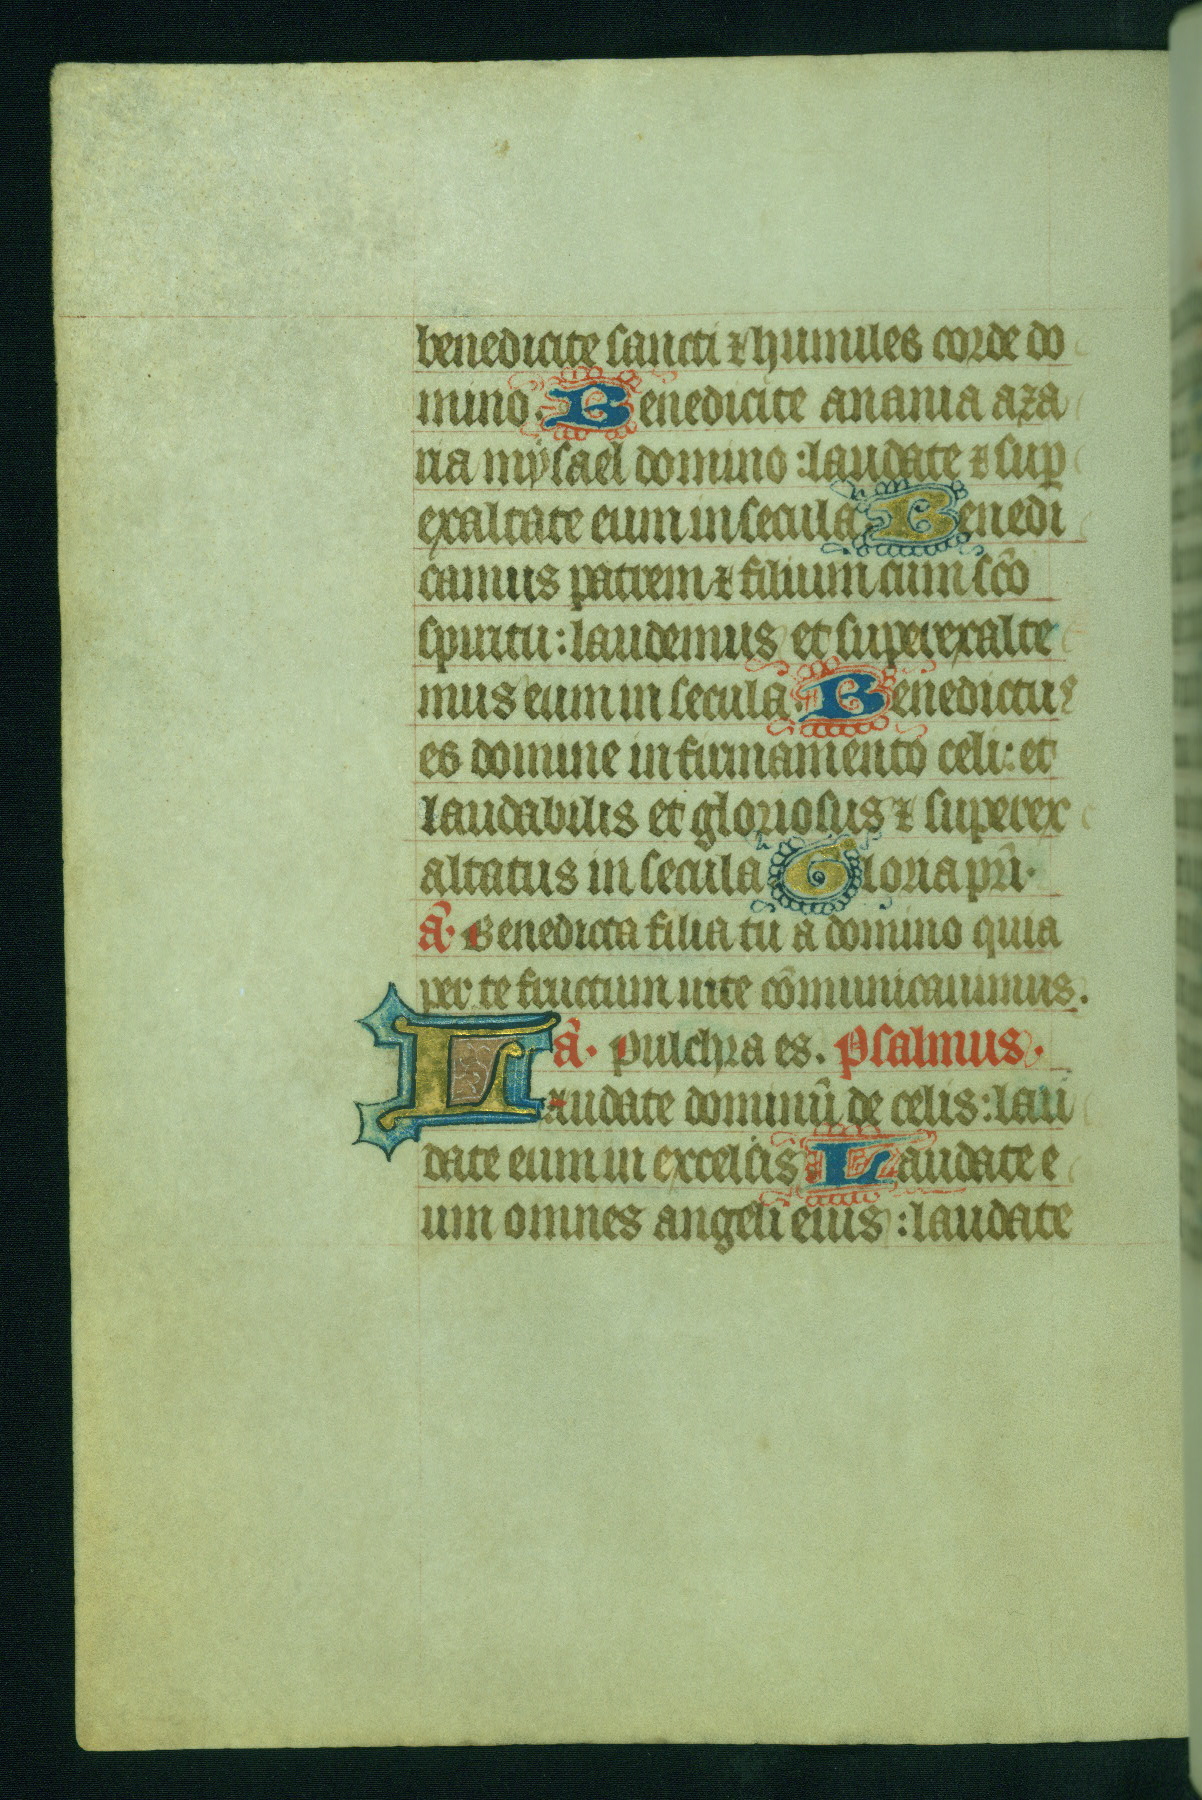 benedicite sancti ⁊ humiles corde do
mino. Benedicite anania aza
ria mysael domino : laudate ⁊ sup̄
exaltate eum in secula Benedi
camus patrem ⁊ filium cum sc̄o
spiritu : laudemus et superexalte
mus eum in secula. Benedictus
es domine in firmamento celi : et
laudabilis et gloriosus ⁊ superex
altatus in secula Gloria pr̄i.
a̅. Benedicta filia tu a domino quia
per te fructum uite cōmunicauimus.
a̅. Pulchra es. Psalmus.
Laudate dominū de celis : lau
date eum in excelsis Laudate e
um omnes angeli eius : laudate